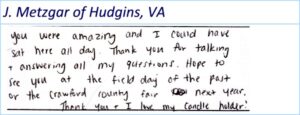 J. Metzgar of Hudgins, VA
you were amazing and I could have
sat here all day. Thank you for talking
+ answering all my questions. Hope to
see you at the field day of the past
or the crawford county fair next year.
Thank you + I love my candle holder!